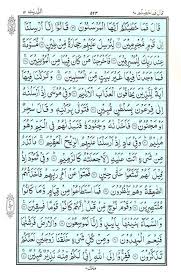 ٥٢٣
قَالَ فَمَا خَطْبُكُمْ اَيُّهَا الْمُرْسَلُوْنَ ۝ قَالُوْۤا اِنَّاۤ اُرْسِلْنَاۤ
اِلٰى قَوْمٍ مُّجْرِمِيْنَ ۝ لِنُرْسِلَ عَلَيْهِمْ حِجَارَةً مِّنْ طِيْنٍ ۝
مُّسَوَّمَةً عِنْدَ رَبِّكَ لِلْمُسْرِفِيْنَ ۝ فَاَخْرَجْنَا مَنْ كَانَ فِيْهَا مِنَ
الْمُؤْمِنِيْنَ ۝ فَمَا وَجَدْنَا فِيْهَا غَيْرَ بَيْتٍ مِّنَ الْمُسْلِمِيْنَ ۝ وَتَرَكْنَا
فِيْهَاۤ اٰيَةً لِّلَّذِيْنَ يَخَافُوْنَ الْعَذَابَ الْاَلِيْمَ ۝ وَفِيْ مُوْسٰۤى اِذْ
اَرْسَلْنٰهُ اِلٰى فِرْعَوْنَ بِسُلْطٰنٍ مُّبِيْنٍ ۝ فَتَوَلّٰى بِرُكْنِهٖ وَقَالَ سٰحِرٌ
اَوْ مَجْنُوْنٌ ۝ فَاَخَذْنٰهُ وَجُنُوْدَهٗ فَنَبَذْنٰهُمْ فِي الْيَمِّ وَهُوَ
مُلِيْمٌ ۝ وَفِيْ عَادٍ اِذْ اَرْسَلْنَا عَلَيْهِمُ الرِّيْحَ الْعَقِيْمَ ۝ مَا تَذَرُ مِنْ
شَيْءٍ اَتَتْ عَلَيْهِ اِلَّا جَعَلَتْهُ كَالرَّمِيْمِ ۝ وَفِيْ ثَمُوْدَ اِذْ قِيْلَ
لَهُمْ تَمَتَّعُوْا حَتّٰى حِيْنٍ ۝ فَعَتَوْا عَنْ اَمْرِ رَبِّهِمْ فَاَخَذَتْهُمُ
الصّٰعِقَةُ وَهُمْ يَنْظُرُوْنَ ۝ فَمَا اسْتَطَاعُوْا مِنْ قِيَامٍ وَّمَا كَانُوْا
مُنْتَصِرِيْنَ ۝ وَقَوْمَ نُوْحٍ مِّنْ قَبْلُ اِنَّهُمْ كَانُوْا قَوْمًا فٰسِقِيْنَ ۝
وَالسَّمَآءَ بَنَيْنٰهَا بِاَيْىدٍ وَّاِنَّا لَمُوْسِعُوْنَ ۝ وَالْاَرْضَ فَرَشْنٰهَا
فَنِعْمَ الْمٰهِدُوْنَ ۝ وَمِنْ كُلِّ شَيْءٍ خَلَقْنَا زَوْجَيْنِ لَعَلَّكُمْ